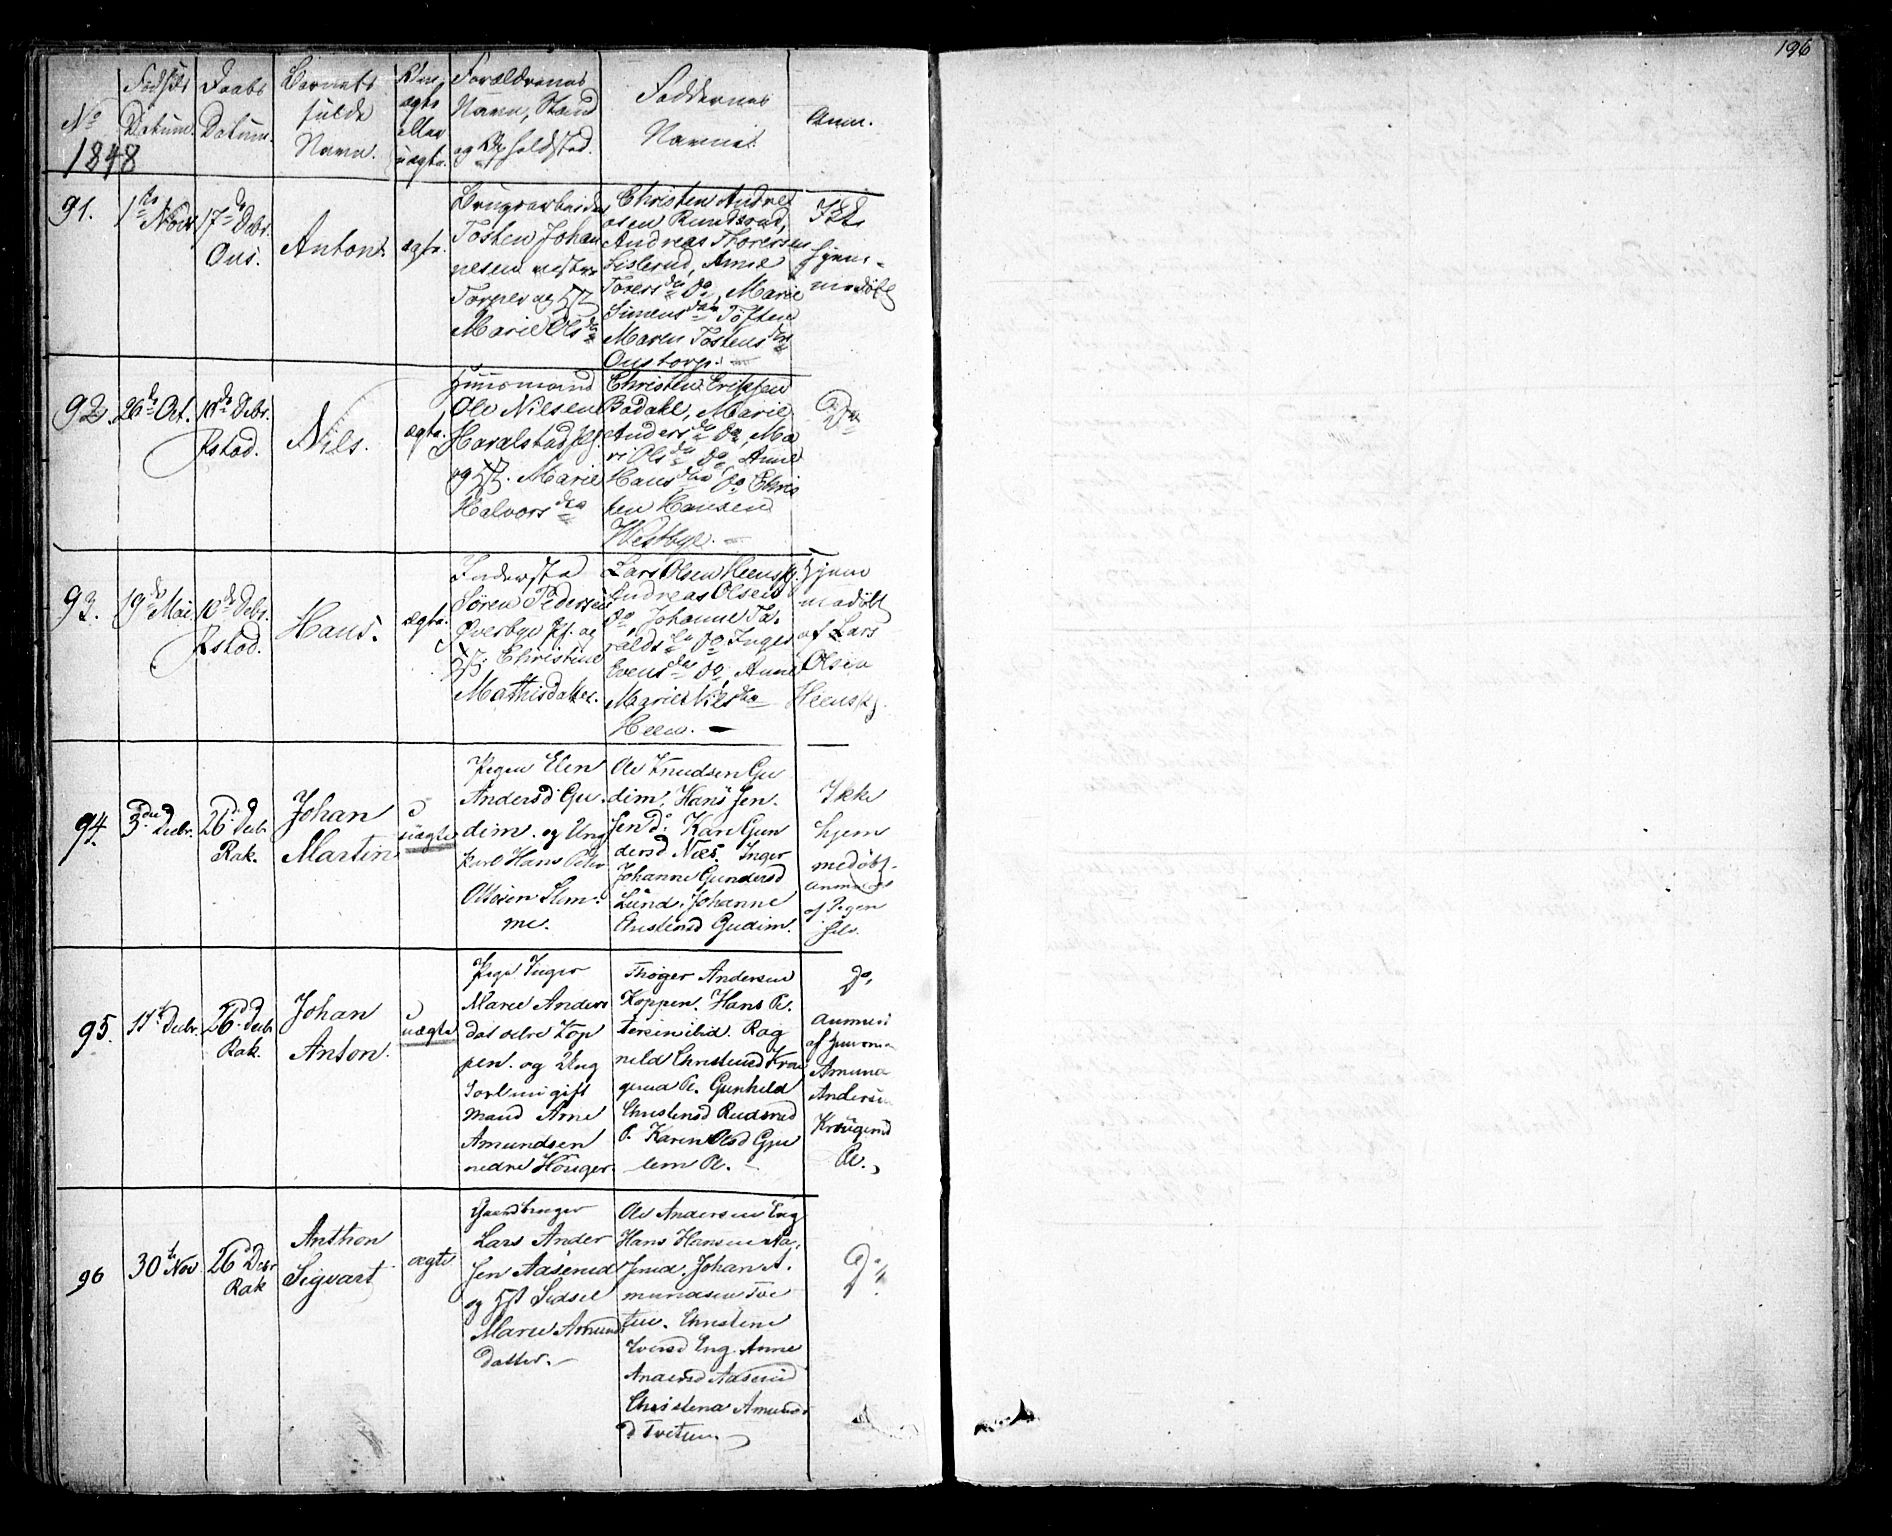 196
No
1848
Fødsels
Datum.
Daabs
Datum.
Barnets
fulde
Navn.
Om
ægte
eller
uægte.
Forældrenes
Navn, Stand
og Opholdsted.
Faddernes
Navne.
Anm.
91.
1ste Novbr.
17de Debr.
Ous.
Anton.
ægte.
Brugsarbeider
Tosten Johan
nesen
Torper og Hst
Marie Olsda
Christen Andre
asen Rundsrud,
Andreas Thoresen
Lislerud, Anne
Toresda do, Marie
Simensda Toften
Maren Tostensda
Oustorp. —
Ikke
hjem-
medøbt
92.
26de Oct.
10de Debr.
Rstad.
Nils.
ægte.
Huusmand
Ole Nilsen
Haralstad
og Hst. Marie
Halvorsda
Christen Eriksen
Bodahl, Marie
Andersda do, Ma
ri Olsda do, Anne
Hansda do Chris
ten Hansen
Westbye. —
Do
93.
19de Mai
10de Debr.
Rstad.
Hans.
ægte.
Inderst
Søren Pedersen
Øverbye Pl. og
Hst. Christine
Mathisdatter.
Lars Olsen Heensg.
Andreas Olsen
do, Johanne Ha-
raldsda do Inger
Evensda do, Anne
Marie Nilsda
Heen. —
Hjem
medøbt
af Lars
Olsen
Heensg.
94.
3die Decbr.
26d. Decbr
Rak.
Johan
Martin
uægte
Pigen Elen
Andersd Gu-
dim. og Ung
karl Hans Peter
Ottosen Slem-
me.
Ole Knudsen Gu
dim, Hans Jen-
sen do. Kari Gun
dersd Næs. Inger
Johanne Gundersd
Lund. Johanne
Christensd Gudim.
Ikke
hjem
medøbt.
anmeldt
af Pigen
selv.
95.
11t Decbr.
26d. Decbr
Rak.
Johan
Anton.
uægte
Pige Inger
Marie Anders
dat øvre Kop
pen. og Ung
Sorl ungift
mand Arne
Amundsen
nedre Houger.
Thøger Andersen
Koppen. Hans Pe-
tersen ibid. Rag
nild Christensd Krou
gerud Pl. Gunhild
Christensd Rudsrud
P. Karen Olsd Gju
lem Pl. —
Do,
anmeldt
af
Amund
Andersen
Krougerud
Pl.
96
30te Nov
26d Decr
Rak
Anthon
Sigvart
ægte
Gaardbruger
Lars Ander
sen Aaserud
og Hst Sidsel
Marie Amunds
datter. —
Ole Andersen Eng
Hans Hansen Aa-
serud. Johan A-
mundsen Tve
ten. Christine
Iversd Eng. Anne
Andersd Aaserud
Christena Amunds
d Tveten.
Do